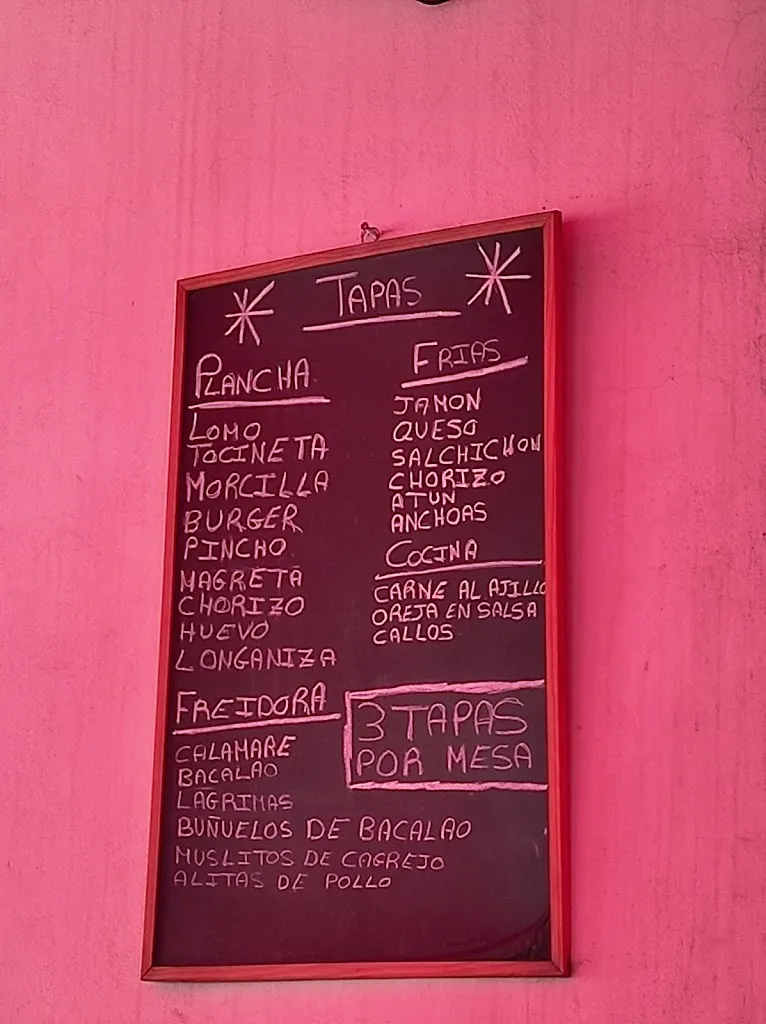 TAPAS
PLANCHA
LOMO
TOCINETA
MORCILLA
BURGER
PINCHO
MAGRETA
CHORIZO
HUEVO
LONGANIZA
FREIDORA
CALAMARE
BACALAO
LAGRIMAS
BUÑUELOS DE BACALAO
MUSLITOS DE CAGREJO
ALITAS DE POLLO
FRIAS
JAMON
QUESO
SALCHICHON
CHORIZO
ATUN
ANCHOAS
COCINA
CARNE AL AJILLO
OREJA EN SALSA
CALLOS
3 TAPAS
POR MESA